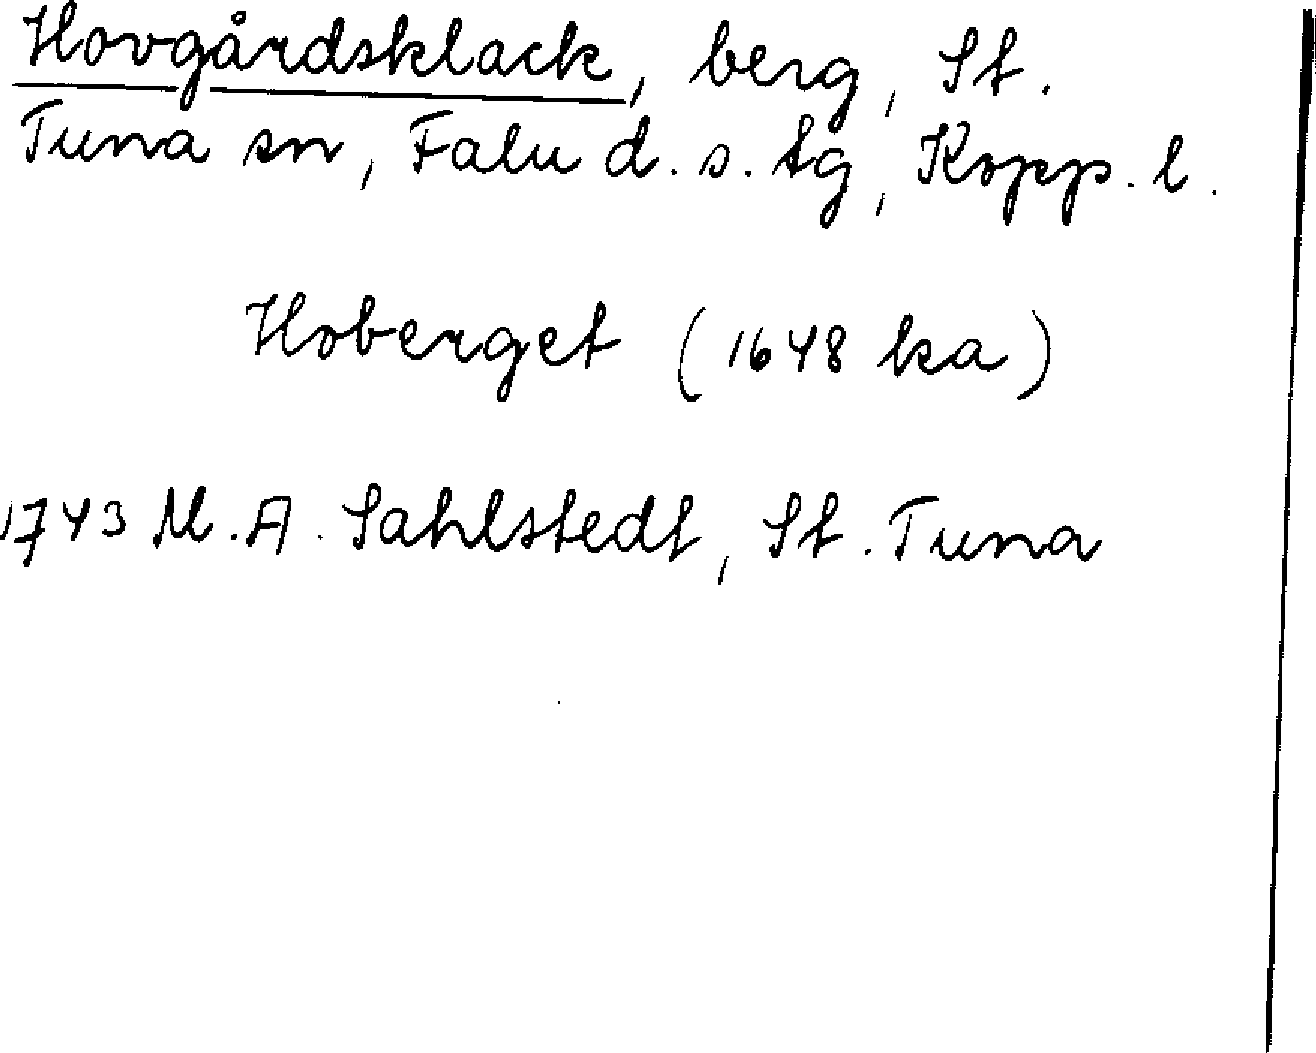 Hovgårdsklack, berg, St.
Tuna sn, Falu d. s. tg, Kopp. l.
Hoberget (1648 ka)
1743 M. A. Sahlstedt, St. Tuna